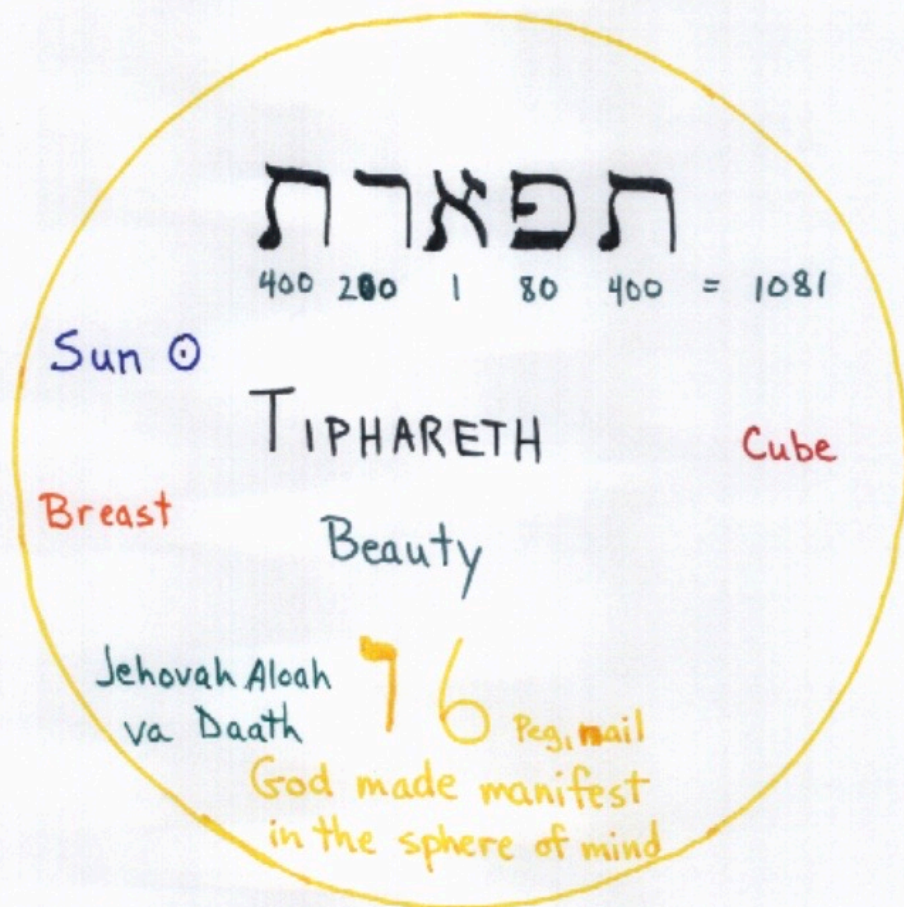 תפארת
400 200 1 80 400 = 1081
Sun ☉
TIPHARETH
Cube
Breast
Beauty
Jehovah Aloah
va Daath
ו 6
Peg, nail
God made manifest
in the sphere of mind